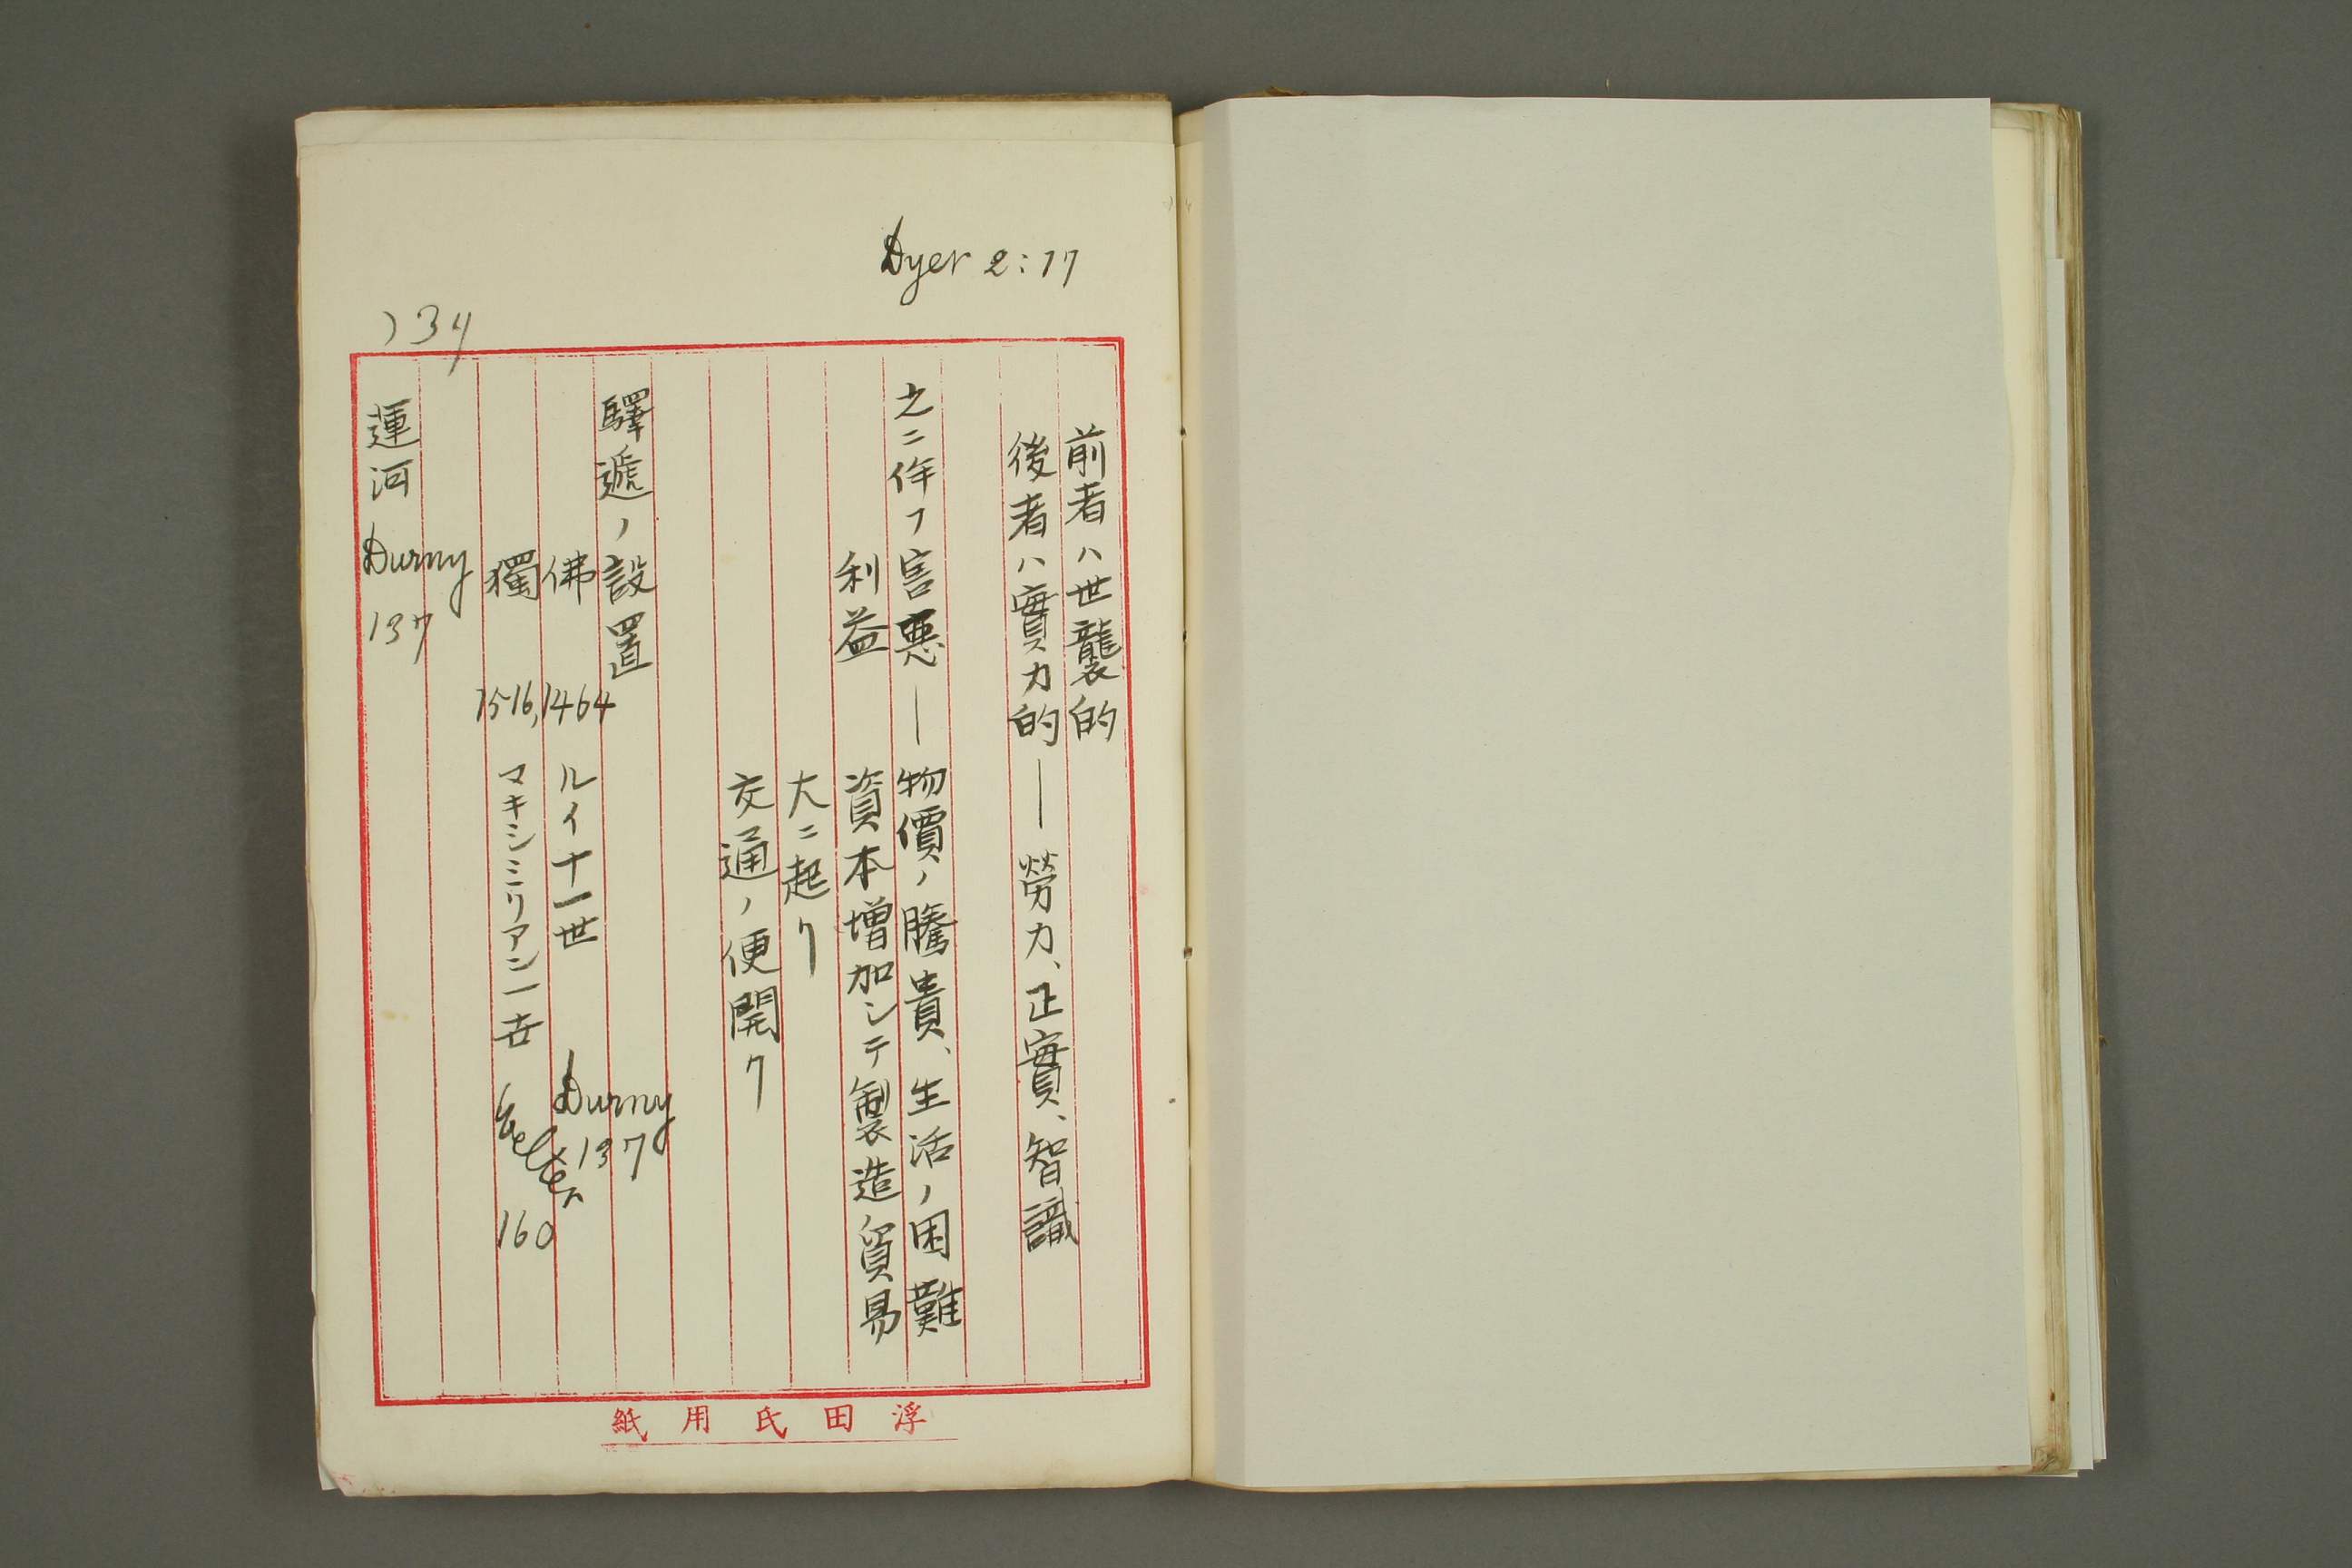 Dyer 2:17
前者ハ世襲的
後者ハ實力的―勞力、正實、智識
之ニ伴フ害悪―物價ノ騰貴、生活ノ困難
利益 資本増加シテ製造貿易
大ニ起リ
交通ノ便開ク
驛遞ノ設置
佛 1464 ルイ十一世 Durny 137
獨 1516, マキシミリアン一世 160
運河 Durny 137
浮田氏用紙